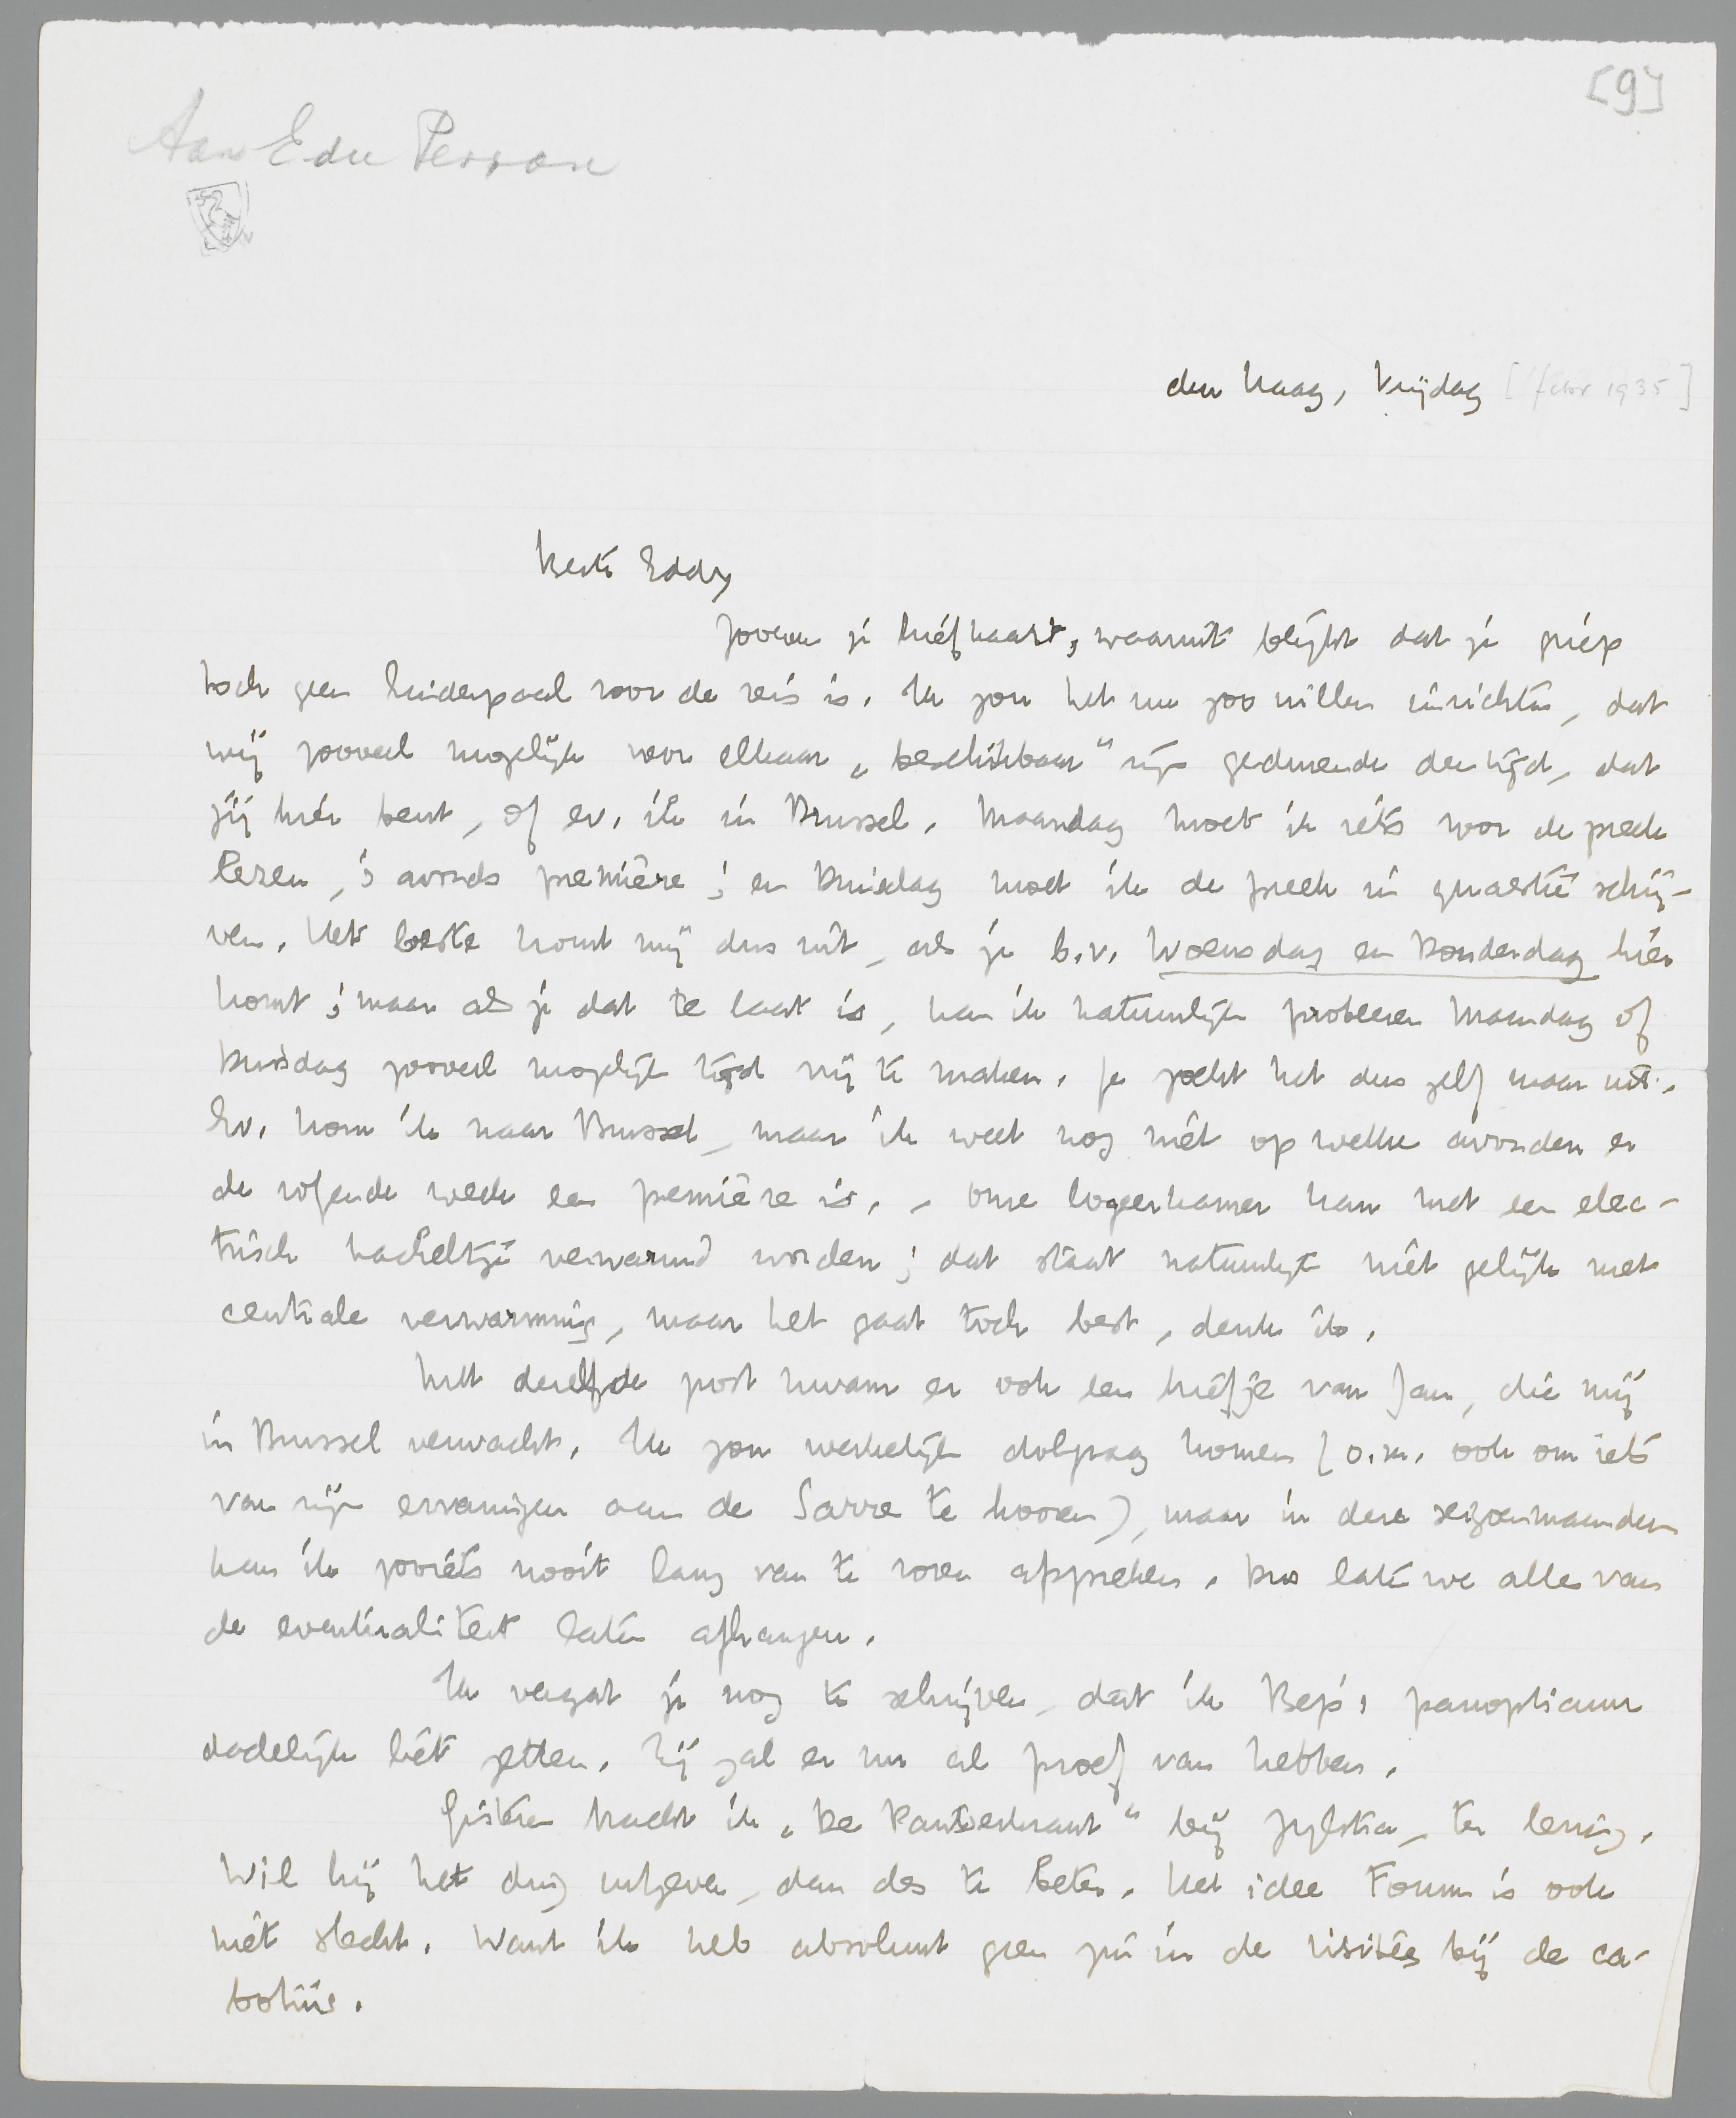 [9]
Aan E du Perron
den Haag, Vrijdag [febr 1935]
Beste Eddy
Zooeven je briefkaart, waaruit blijkt dat je griep
toch geen hinderpaal voor de reis is. Ik zou het nu zoo willen inrichten, dat
wij zooveel mogelijk voor elkaar „beschikbaar" zijn gedurende den tijd, dat
jij hier bent, of ev. ik in Brussel. Maandag moet ik iets voor de preek
lezen, 's avonds première; en Dinsdag moet ik de preek in quaestie schrij-
ven. Het beste komt mij dus uit, als je b.v. Woensdag en Donderdag hier
komt; maar als je dat te laat is, kan ik natuurlijk probeeren Maandag of
Dinsdag zooveel mogelijk tijd vrij te maken. Je zoekt het dus zelf maar uit.
Ev. kom ik naar Brussel, maar ik weet nog niet op welke avonden er
de volgende week een première is. - Onze logeerkamer kan met een elec-
trisch kacheltje verwarmd worden; dat staat natuurlijk niet gelijk met
centrale verwarming, maar het gaat toch best, denk ik.
Met dezelfde post kwam er ook een briefje van Jan, die mij
in Brussel verwacht. Ik zou werkelijk dolgraag komen (o.m. ook om iets
van zijn ervaringen aan de Sarre te hooren), maar in deze seizoenmaanden
kan ik zooiets nooit lang van te voren afspreken. Dus laten we alles van
de eventualiteit laten afhangen.
Ik vergat je nog te schrijven, dat ik Bep's panopticum
dadelijk liet zetten. Zij zal er nu al proef van hebben.
Gisteren bracht ik „De Pantserkrant" bij Zijlstra, ter lezing.
Wil hij het ding uitgeven, dan des te beter. Het idee Forum is ook
niet slecht. Want ik heb absoluut geen zin in de visites bij de ca-
tholiis.